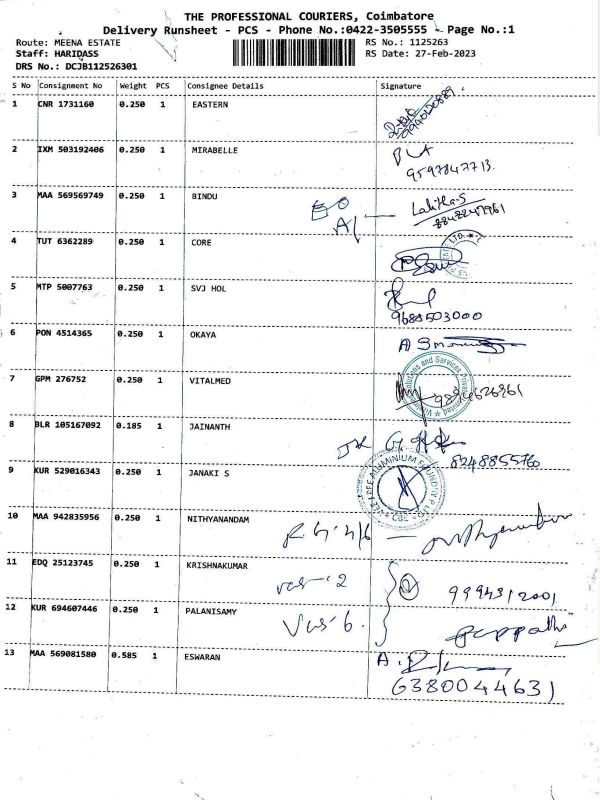 THE PROFESSIONAL COURIERS, Coimbatore
Delivery Runsheet - PCS - Phone No.:0422-3505555 - Page No.:1
Route: MEENA ESTATE RS No.: 1125263
Staff: HARIDASS RS Date: 27-Feb-2023
DRS No.: DCJB112526301
S No Consignment No Weight PCS Consignee Details Signature
1 CNR 1731160 0.250 1 EASTERN
2 IXM 503192406 0.250 1 MIRABELLE
9597847713
3 MAA 569569749 0.250 1 BINDU
Lalitha.S
4 TUT 6362289 0.250 1 CORE
LTD.
5 MTP 5007763 0.250 1 SVJ HOL
9688503000
6 PON 4514365 0.250 1 OKAYA
7 GPM 276752 0.250 1 VITALMED
Solutions and Services Private
9894626961
8 BLR 105167092 0.185 1 JAINANTH
8248855760
9 KUR 529016343 0.250 1 JANAKI S
ALUMINIUM FOUNDRY P LTD
10 MAA 942835956 0.250 1 NITHYANANDAM
11 EDQ 25123745 0.250 1 KRISHNAKUMAR
9994312001
12 KUR 694607446 0.250 1 PALANISAMY
13 MAA 569081580 0.585 1 ESWARAN
6380044631